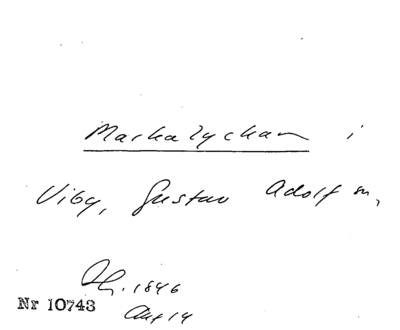 Markalyckan i
Viby, Gustav Adolf sn,
1846
Nr 10743
14